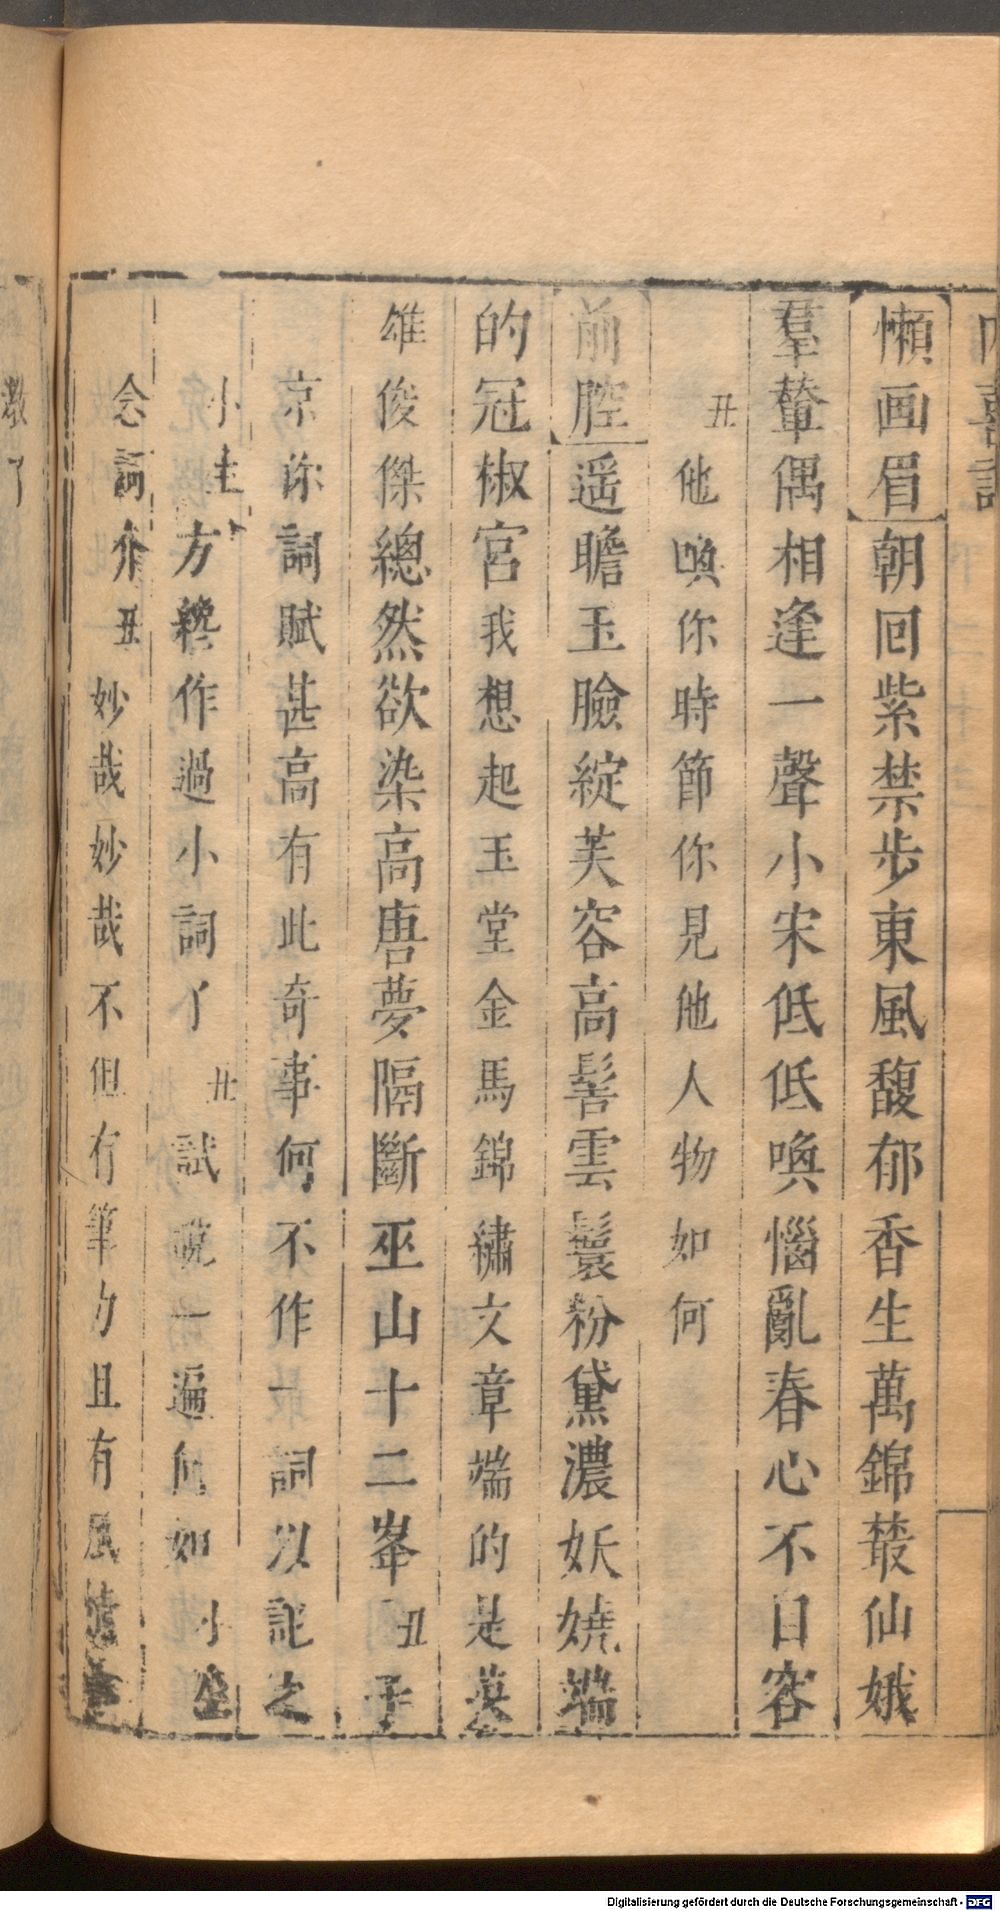 懶画眉朝回紫禁步東風馥郁香生萬錦叢仙娥
羣輦偶相逢一聲小宋低低喚惱亂春心不日容
丑他喚你時節你見他人物如何
前腔遥瞻玉臉綻芙容高髻雲鬟粉黛濃妖嬈端
的冠椒宮我想起玉堂金馬錦繡文章端的是英
雄俊傑總然欲染高唐夢隔斷巫山十二峯丑子
京你詞賦甚高有此奇事何不作一詞以記之
小生方纔作過小詞了丑試說一遍何如小生
念詞介丑妙哉妙哉不但有筆力且有風情
Digitalisierung gefördert durch die Deutsche Forschungsgemeinschaft - DFG